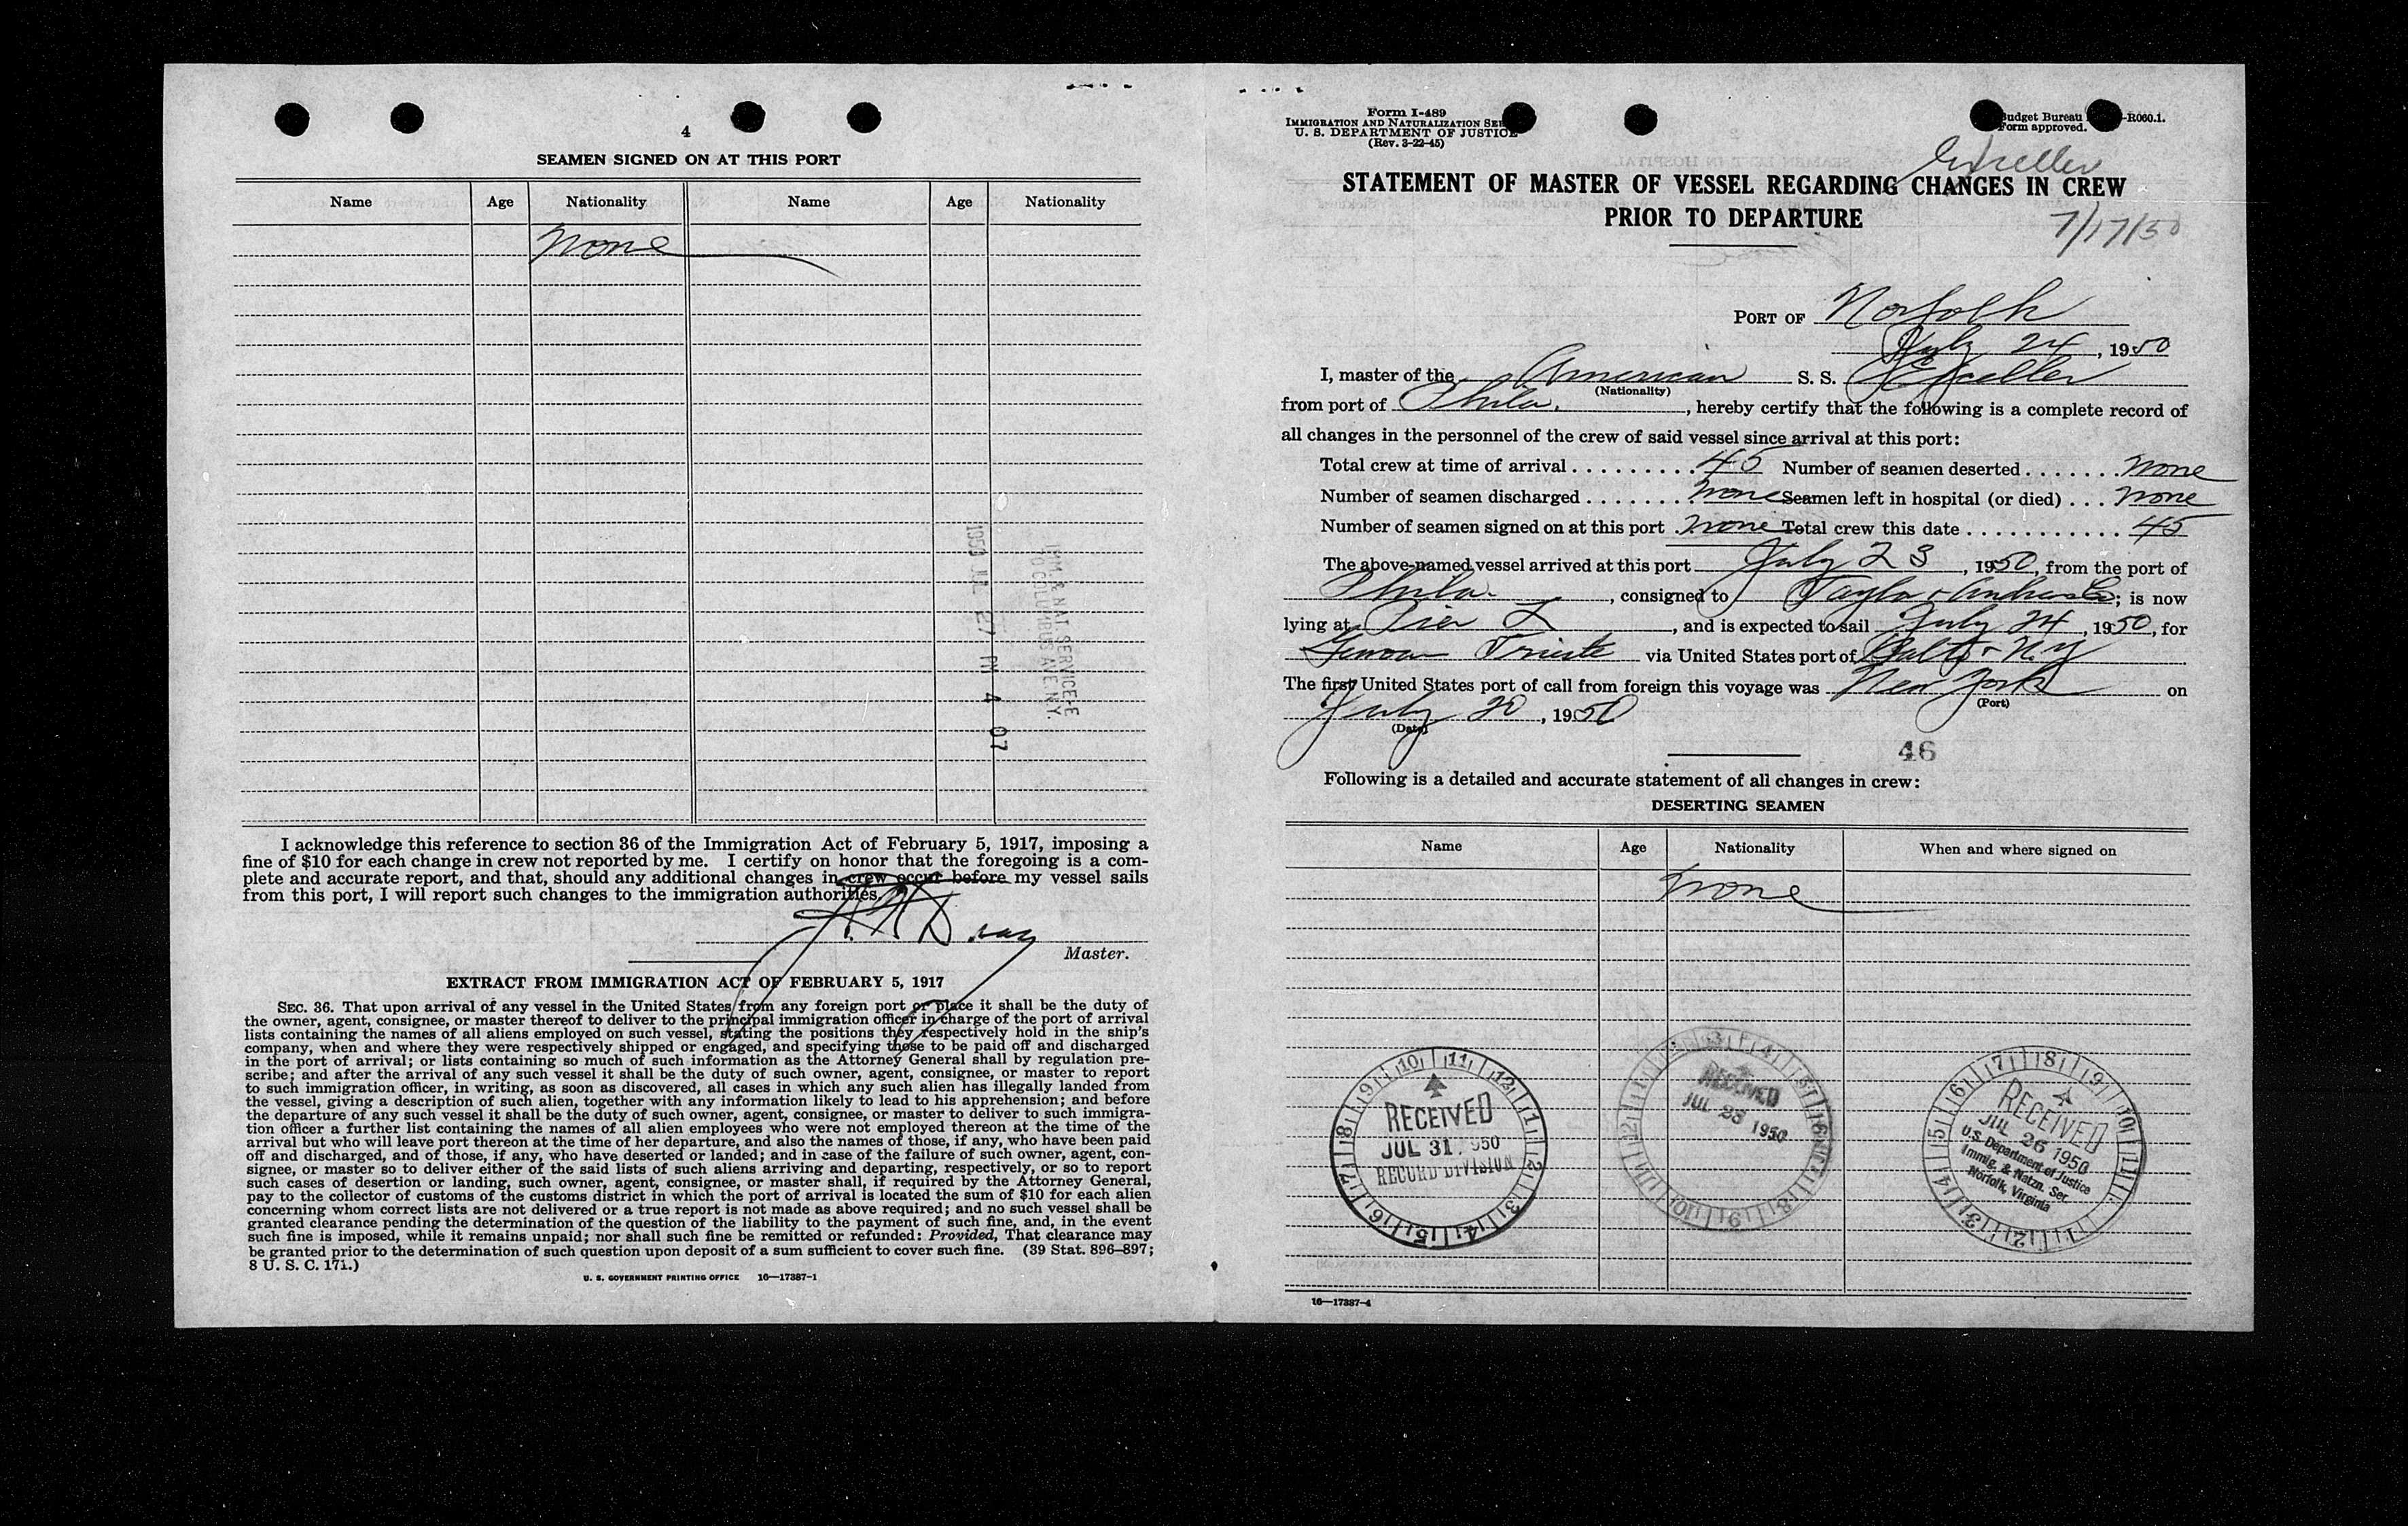 4
SEAMEN SIGNED ON AT THIS PORT
Name Age Nationality Name Age Nationality
None
IMM. & NAT SERVICE
70 COLUMBUS AVE N.Y.
1950 JUL 27 PM 4 07
I acknowledge this reference to section 36 of the Immigration Act of February 5, 1917, imposing a
fine of $10 for each change in crew not reported by me. I certify on honor that the foregoing is a com-
plete and accurate report, and that, should any additional changes in crew occur before my vessel sails
from this port, I will report such changes to the immigration authorities.
Master.
EXTRACT FROM IMMIGRATION ACT OF FEBRUARY 5, 1917
SEC. 36. That upon arrival of any vessel in the United States from any foreign port or place it shall be the duty of
the owner, agent, consignee, or master thereof to deliver to the principal immigration officer in charge of the port of arrival
lists containing the names of all aliens employed on such vessel, stating the positions they respectively hold in the ship's
company, when and where they were respectively shipped or engaged, and specifying those to be paid off and discharged
in the port of arrival; or lists containing so much of such information as the Attorney General shall by regulation pre-
scribe; and after the arrival of any such vessel it shall be the duty of such owner, agent, consignee, or master to report
to such immigration officer, in writing, as soon as discovered, all cases in which any such alien has illegally landed from
the vessel, giving a description of such alien, together with any information likely to lead to his apprehension; and before
the departure of any such vessel it shall be the duty of such owner, agent, consignee, or master to deliver to such immigra-
tion officer a further list containing the names of all alien employees who were not employed thereon at the time of the
arrival but who will leave port thereon at the time of her departure, and also the names of those, if any, who have been paid
off and discharged, and of those, if any, who have deserted or landed; and in case of the failure of such owner, agent, con-
signee, or master so to deliver either of the said lists of such aliens arriving and departing, respectively, or so to report
such cases of desertion or landing, such owner, agent, consignee, or master shall, if required by the Attorney General,
pay to the collector of customs of the customs district in which the port of arrival is located the sum of $10 for each alien
concerning whom correct lists are not delivered or a true report is not made as above required; and no such vessel shall be
granted clearance pending the determination of the question of the liability to the payment of such fine, and, in the event
such fine is imposed, while it remains unpaid; nor shall such fine be remitted or refunded: Provided, That clearance may
be granted prior to the determination of such question upon deposit of a sum sufficient to cover such fine. (39 Stat. 896–897;
8 U. S. C. 171.)
U. S. GOVERNMENT PRINTING OFFICE 16—17387-1
Form I-489
IMMIGRATION AND NATURALIZATION SER
U. S. DEPARTMENT OF JUSTICE
(Rev. 3-22-45)
Budget Bureau -R060.1.
Form approved.
Exceller
STATEMENT OF MASTER OF VESSEL REGARDING CHANGES IN CREW
PRIOR TO DEPARTURE
7/17/50
PORT OF Norfolk
July 24, 1950
I, master of the American S. S. Exceller
(Nationality)
from port of Phila., hereby certify that the following is a complete record of
all changes in the personnel of the crew of said vessel since arrival at this port:
Total crew at time of arrival 45 Number of seamen deserted None
Number of seamen discharged None Seamen left in hospital (or died) None
Number of seamen signed on at this port None Total crew this date 45
The above-named vessel arrived at this port July 23, 1950, from the port of
Phila., consigned to Taylor & ; is now
lying at Pier L, and is expected to sail July 24, 1950, for
Genoa Trieste via United States port of Balto & N.Y
The first United States port of call from foreign this voyage was New York on
(Port)
July 20, 1950
(Date)
46
Following is a detailed and accurate statement of all changes in crew:
DESERTING SEAMEN
Name Age Nationality When and where signed on
None
RECEIVED
JUL 31. 950
RECORD DIVISION
RECEIVED
JUL 1950
RECEIVED
JUL 26 1950
U.S. Department of Justice
Immig. & Natzn. Ser.
Norfolk, Virginia
16—17387-4